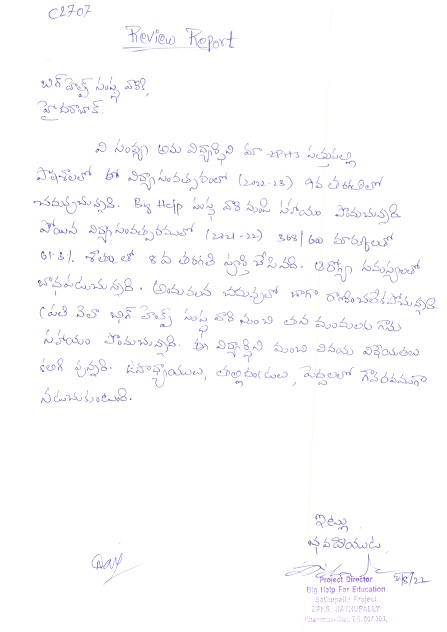 C2707
Review Report
బిగ్ హెల్ప్ సంస్థ వారికి,
హైదరాబాద్.
వి సంధ్యా అను విద్యార్థిని మా ZPHS సత్తుపల్లి
పాఠశాలలో ఈ విద్యాసంవత్సరంలో (2022-23) 9వ తరగతిలో
చదువుచున్నాది. Big Help సంస్థ వారి నుండి సహాయం పొందుచున్నాది
పోయిన విద్యాసంవత్సరములో (2021-22) 368/600 మార్కులతో
61.3% శాతంతో 8వ తరగతి పూర్తి చేసినది. ఆరోగ్య సమస్యలతో
బాధపడుచున్నాది. అందువలన చదువులో బాగా రాణించలేకపోచున్నాది
ప్రతి నెలా బిగ్ హెల్ప్ సంస్థ వారి నుంచి తన మందులకు గాను
సహాయం పొందుచున్నాది. ఈ విద్యార్థిని మంచి వినయ విధేయతలు
కలిగి వున్నాది. ఉపాధ్యాయులు, తల్లిదండ్రులు, పెద్దలతో గౌరవముగా
నడుచుకుంటుంది.
ఇట్లు
భవదీయుడు,
Project Director
Big Help For Education
Sathupally Project
ZPHS, SATHUPALLY
Khammam Dist. T.S. 507 303.